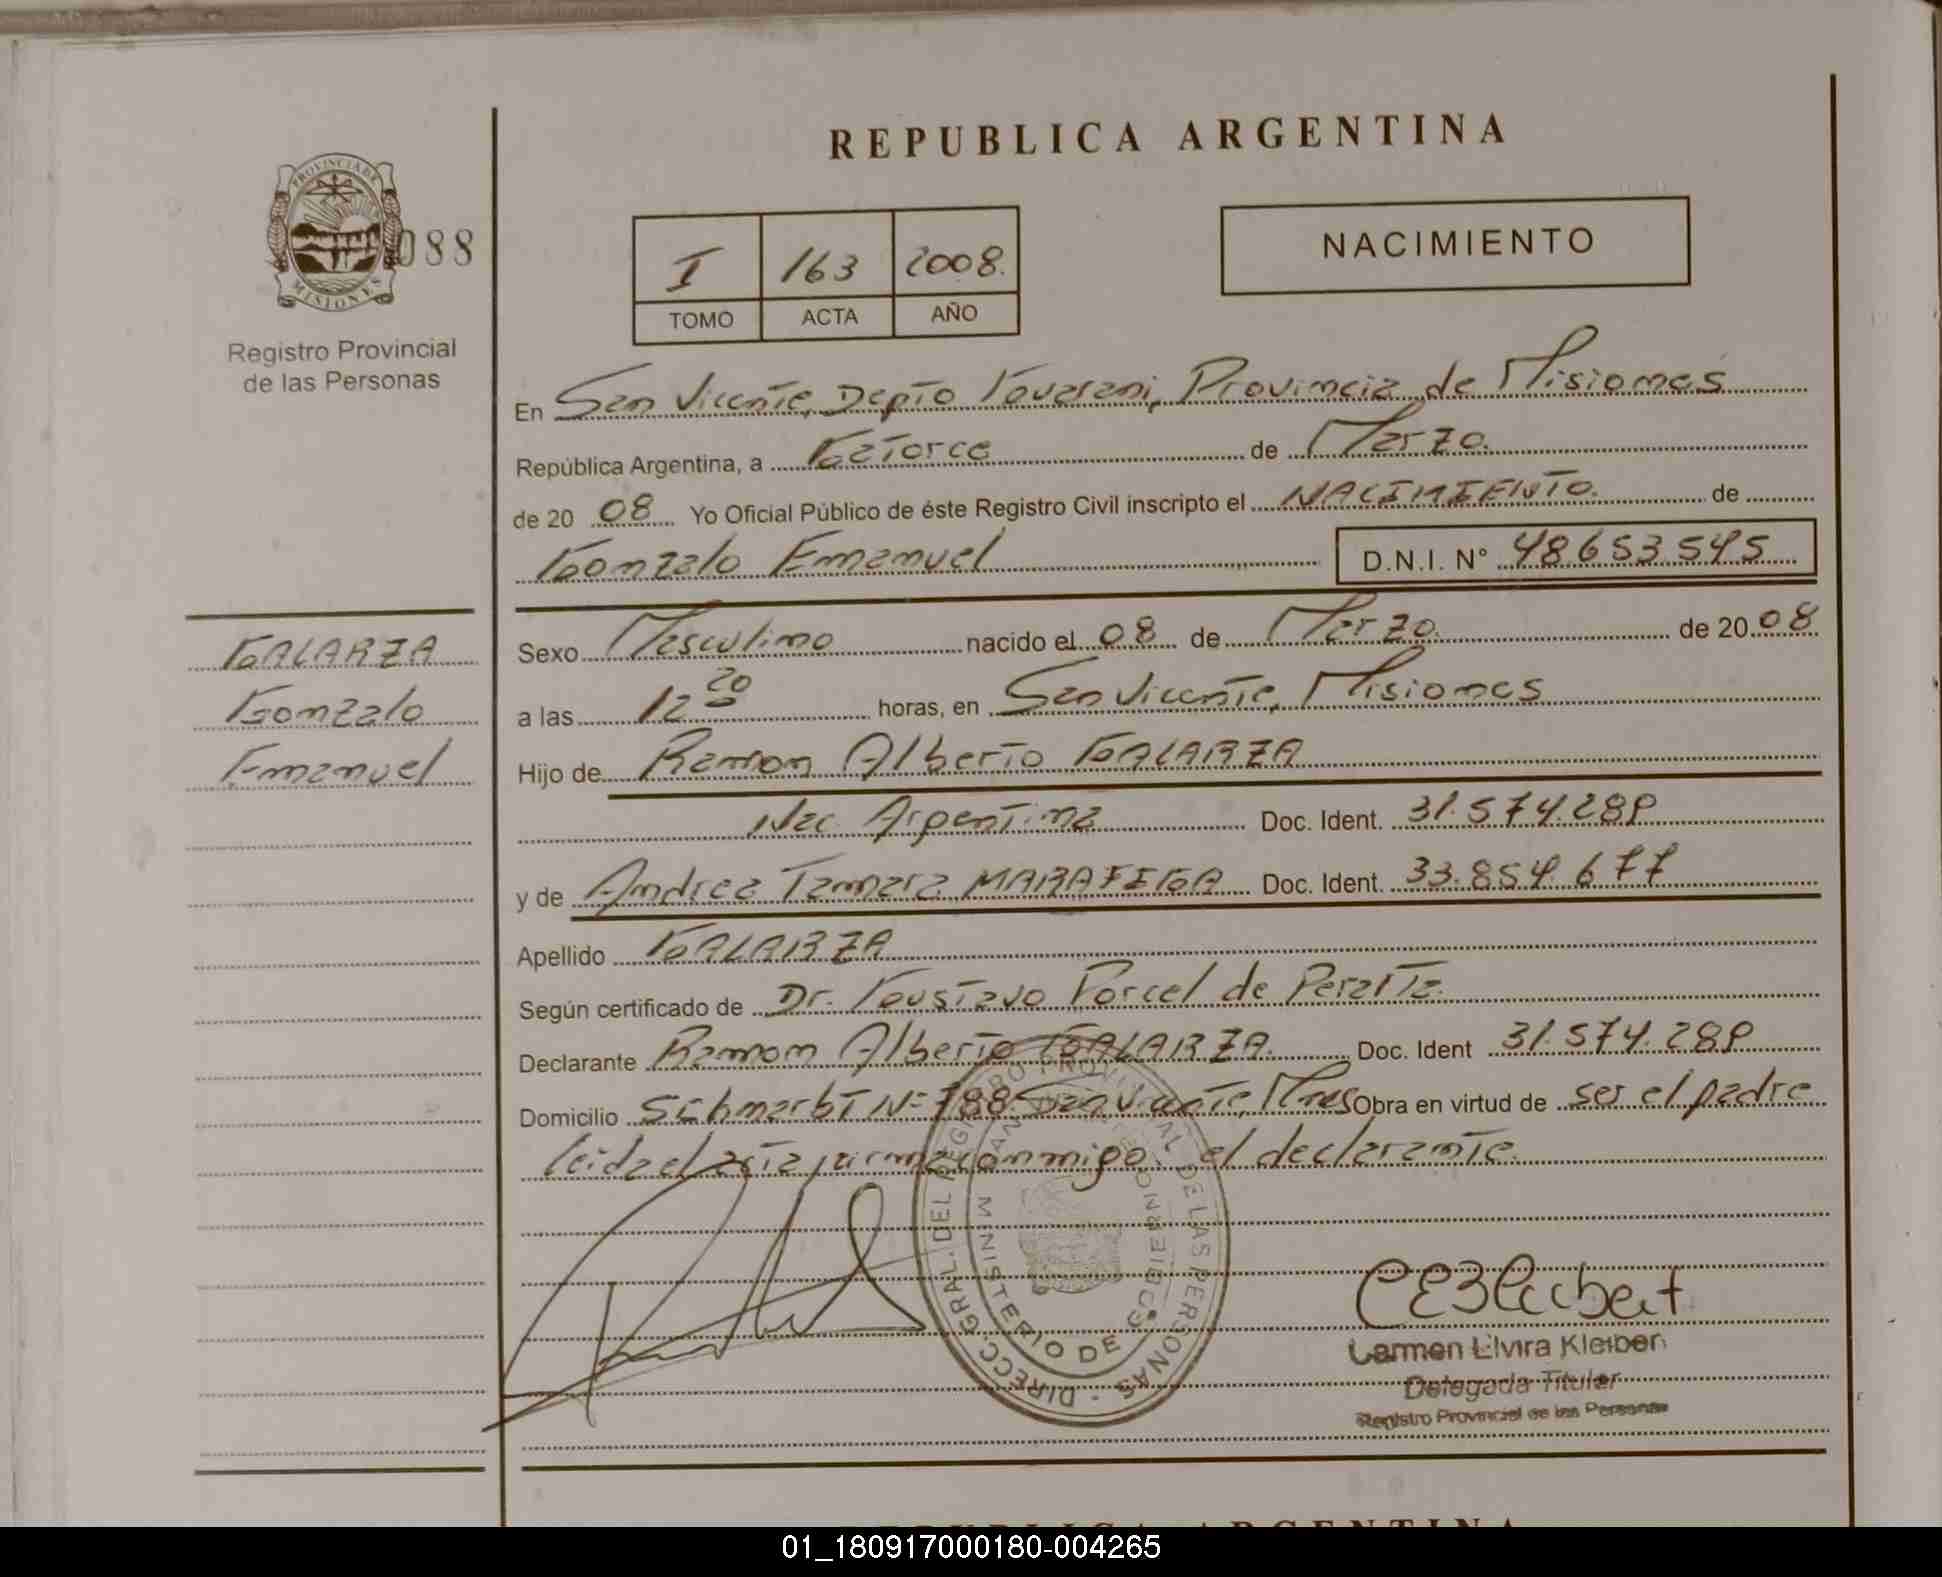 REPUBLICA ARGENTINA
PROVINCIA DE MISIONES
088
Registro Provincial
de las Personas
I 163 2008.
TOMO ACTA AÑO
NACIMIENTO
En San Vicente, Depto Guarani, Provincia de Misiones
República Argentina, a Catorce de Marzo.
de 20 08 Yo Oficial Público de éste Registro Civil inscripto el NACIMIENTO. de
Gonzalo Emanuel D.N.I. N° 48653545
GALARZA
Gonzalo
Emanuel
Sexo Masculino nacido el 08 de Marzo. de 20 08
a las 12 20 horas, en San Vicente, Misiones
Hijo de Ramon Alberto GALARZA
Nac. Argentina Doc. Ident. 31.574.289
y de Andrea Tamara MARAFIGA Doc. Ident. 33.854.677
Apellido GALARZA
Según certificado de Dr. Gustavo Porcel de Peralta.
Declarante Ramon Alberto GALARZA. Doc. Ident 31.574.289
Domicilio N= 788 San Vicente, Mnes Obra en virtud de ser el padre
leida el acta firma conmigo el declarante.
DIRECC. GRAL. DEL REGISTRO PROVINCIAL DE LAS PERSONAS -
MINISTERIO DE GOBIERNO
Carmen Elvira Kleiber
Delegada Titular
Registro Provincial de las Personas
REPUBLICA ARGENTINA
01_180917000180-004265